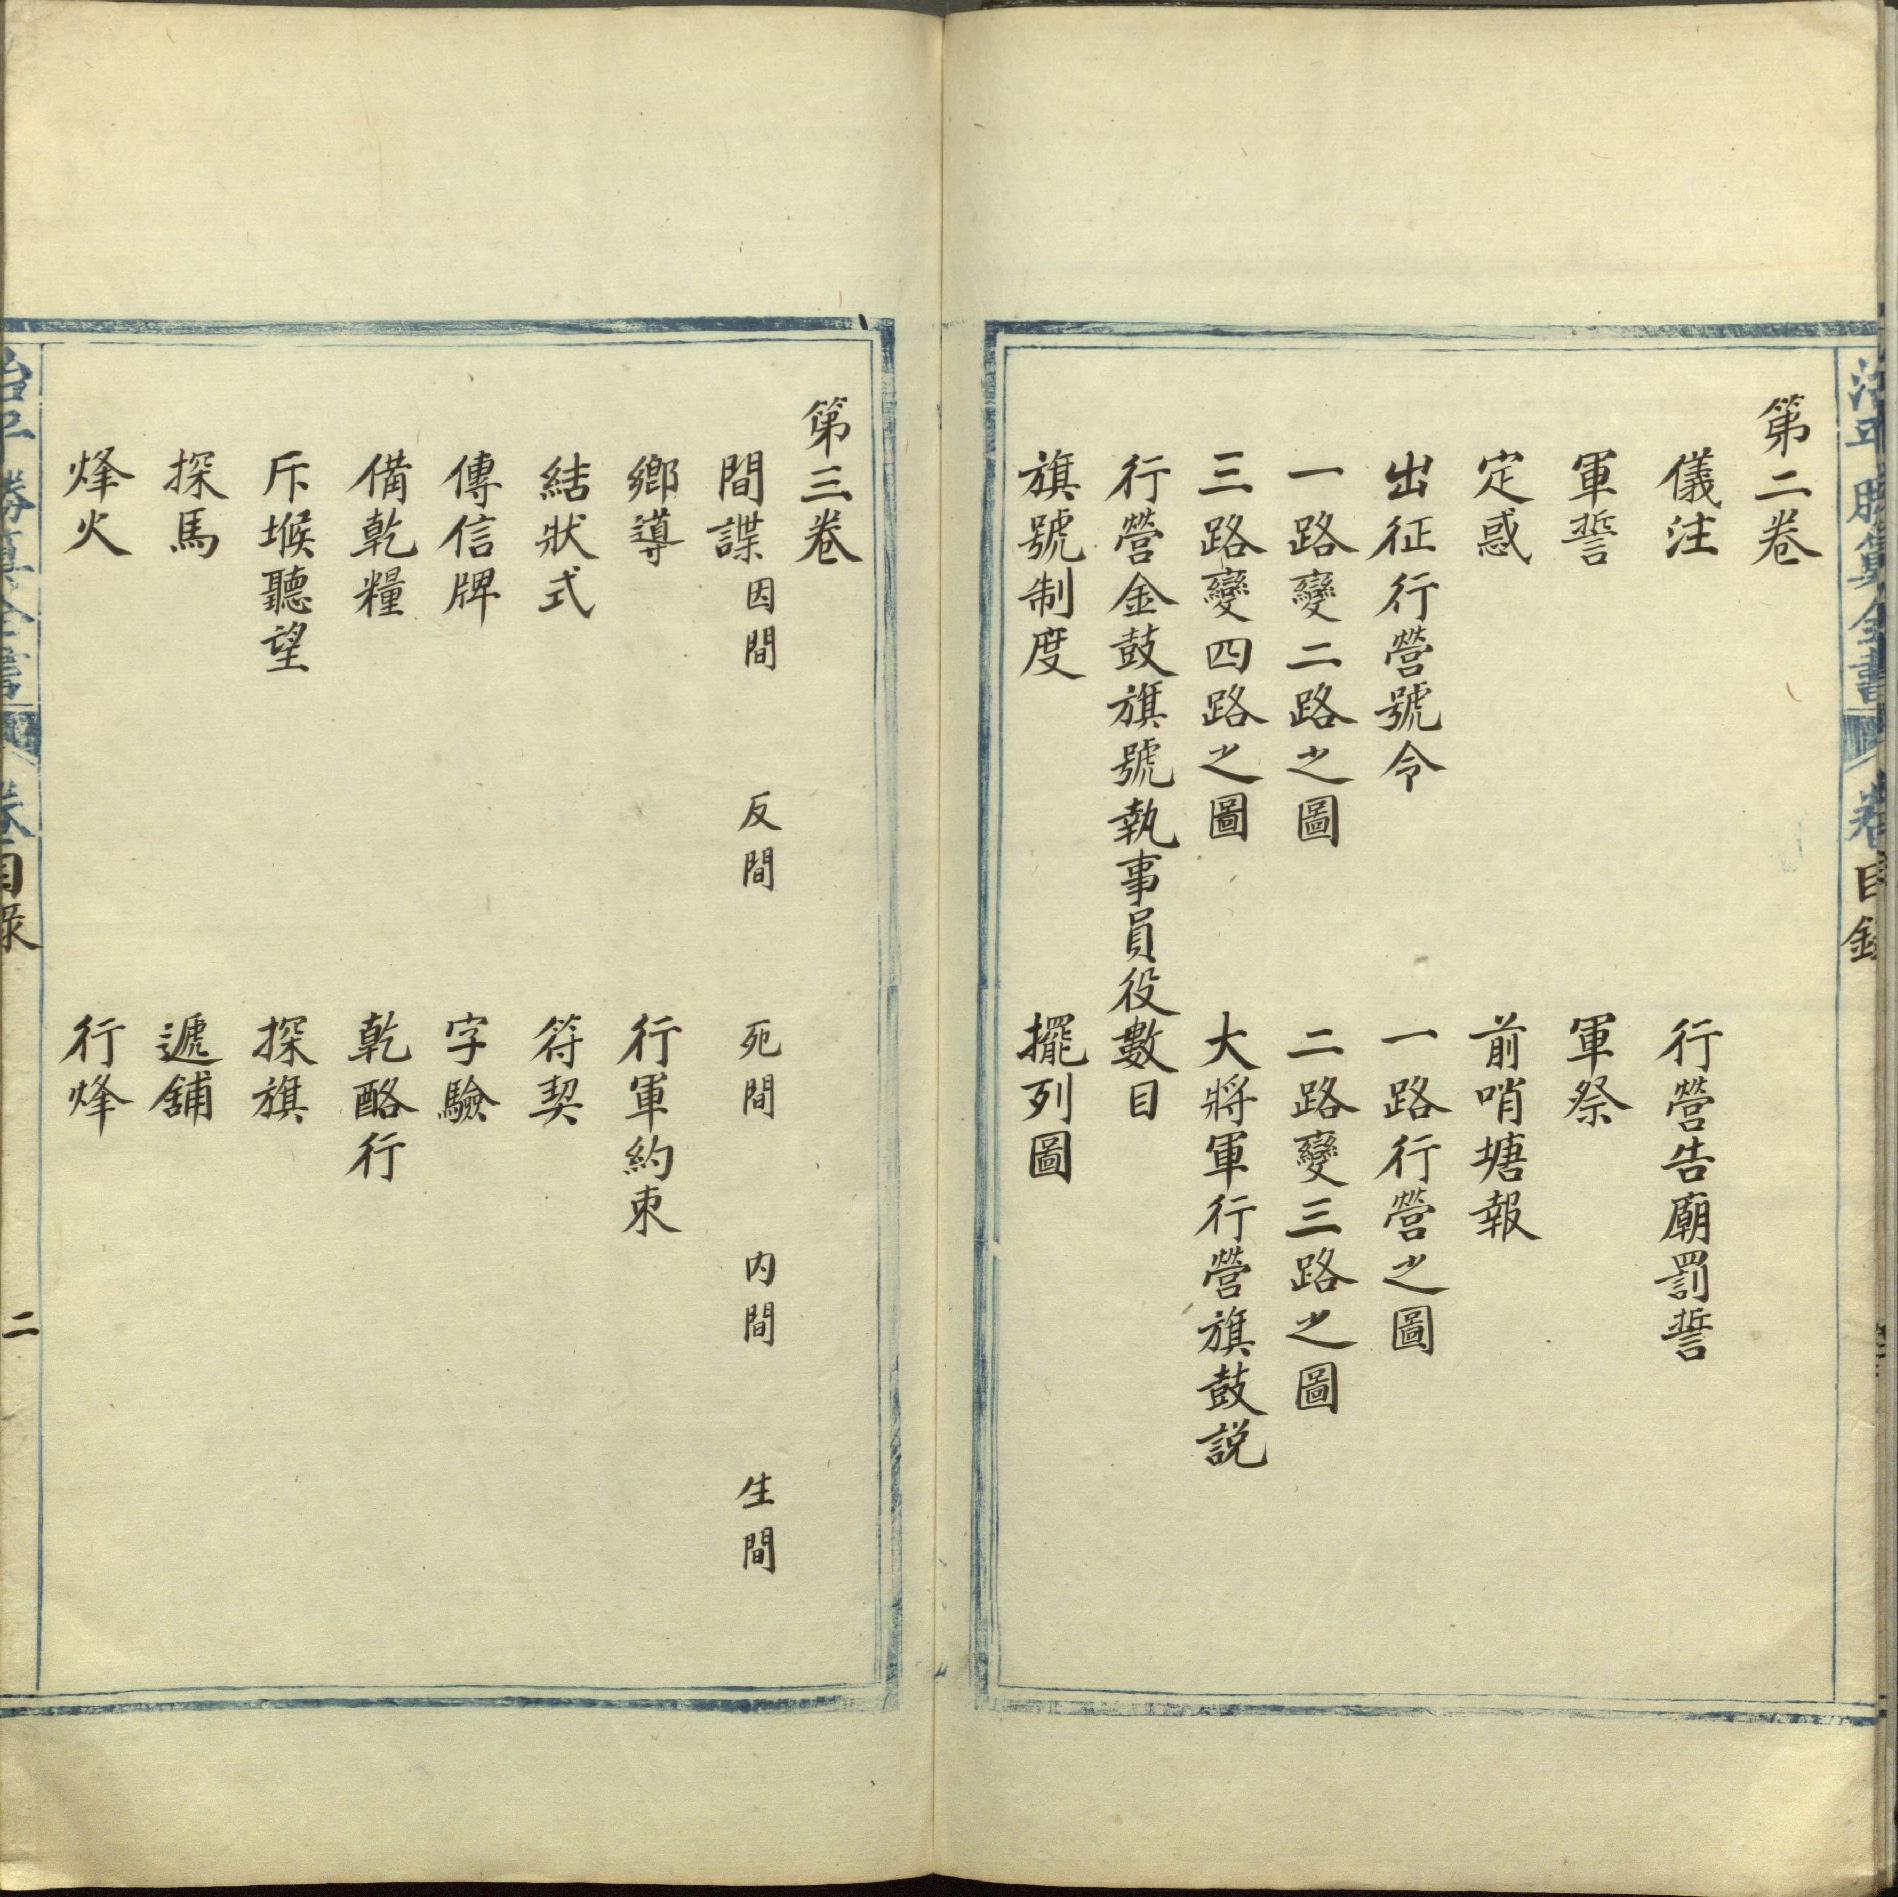 治平勝算全書 卷 目錄
第二卷
儀注 行營告廟罰誓
軍誓 軍祭
定惑 前哨塘報
出征行營號令 一路行營之圖
一路變二路之圖 二路變三路之圖
三路變四路之圖 大將軍行營旗鼓説
行營金鼓旗號執事員役數目
旗號制度 擺列圖
第三卷
間諜 因間 反間 死間 内間 生間
鄉導 行軍約束
結狀式 符契
傳信牌 字驗
備乾糧 乾酪行
斥堠聽望 探旗
探馬 遞舖
烽火 行烽
治平勝算全書 卷 目錄 二